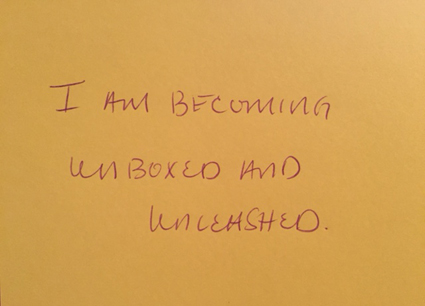 I AM BECOMING
UNBOXED AND
UNLEASHED.